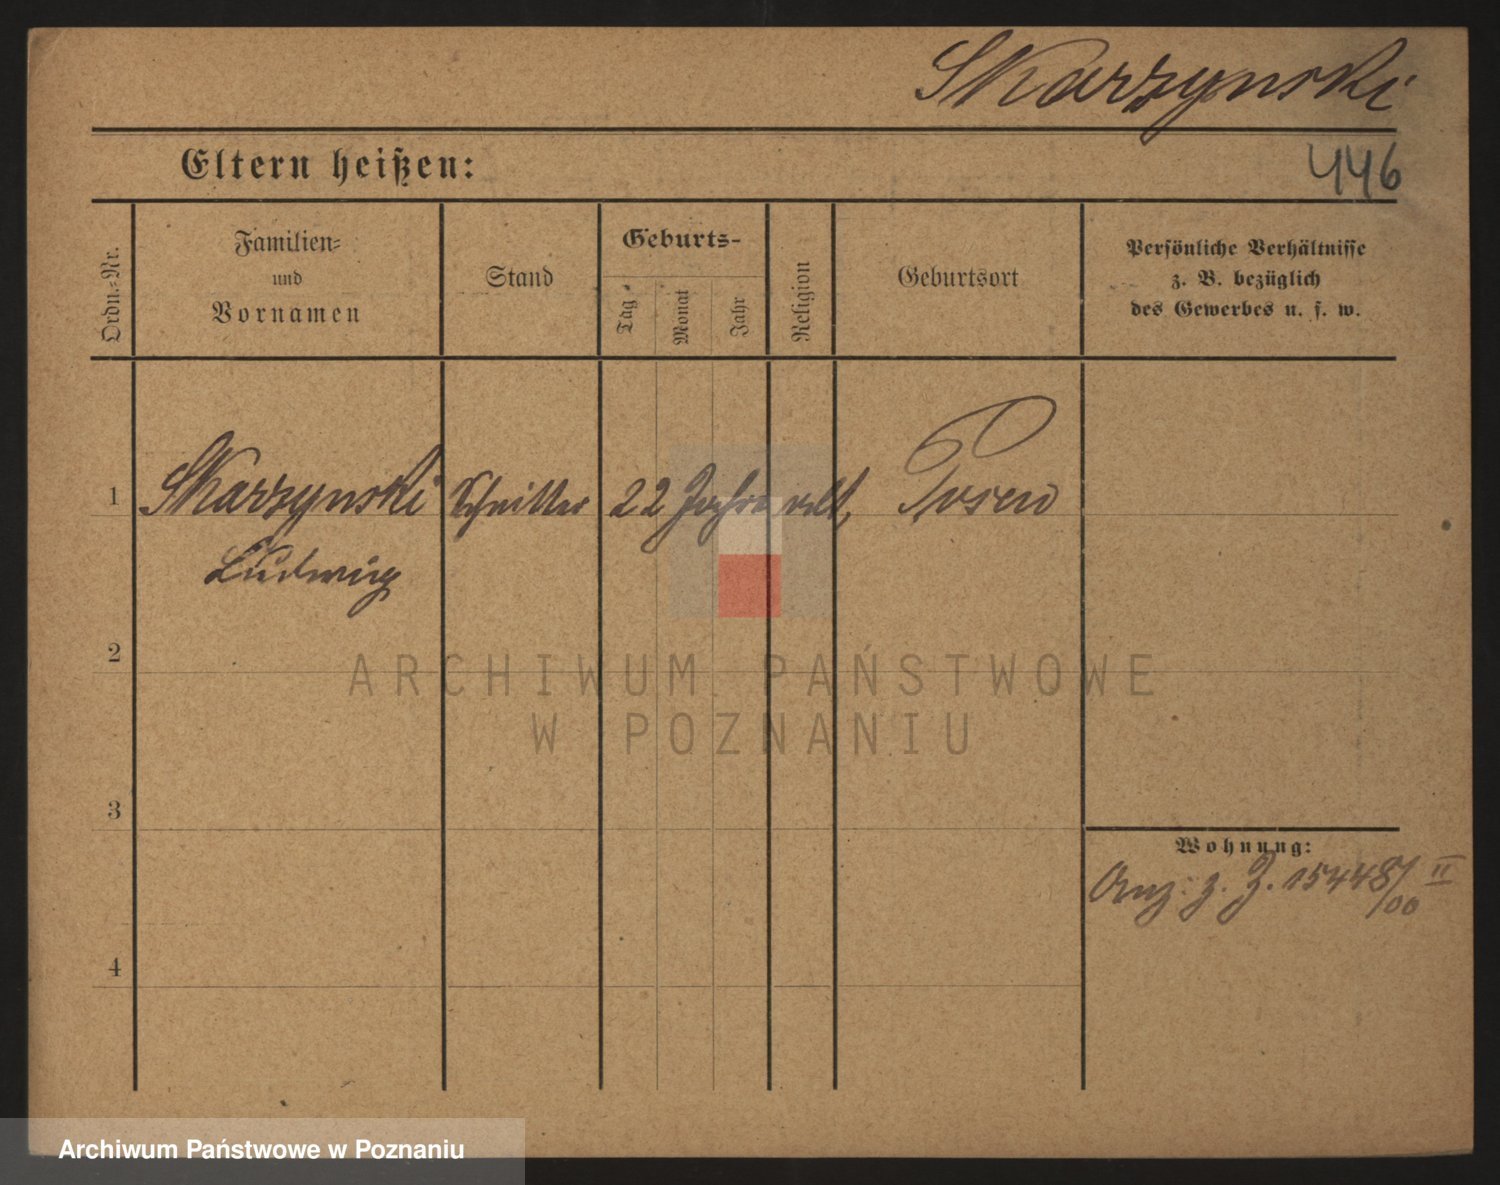 Skarzynski
Eltern heißen:
446
Ordn.-Nr.
Familien-
und
Vornamen
Stand
Geburts-
Tag
Monat
Jahr
Religion
Geburtsort
Persönliche Verhältnisse
z. B. bezüglich
des Gewerbes u. s. w.
1
Skarzynski
Ludwig
Schnitter
22 Jahre alt,
Posen
2
ARCHIWUM PAŃSTWOWE
W POZNANIU
3
Wohnung:
Anz. z. Z. 15448/00 II
4
Archiwum Państwowe w Poznaniu